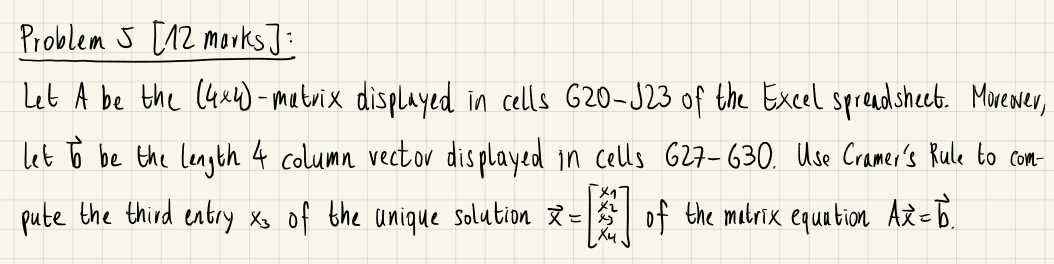 Problem 5 [12 marks]:
Let A be the (4x4)-matrix displayed in cells G20-J23 of the Excel spreadsheet. Moreover,
let b⃗ be the length 4 column vector displayed in cells G27-G30. Use Cramer's Rule to com-
pute the third entry x₃ of the unique solution x⃗ = [x₁ x₂ x₃ x₄] of the matrix equation Ax⃗ = b⃗.